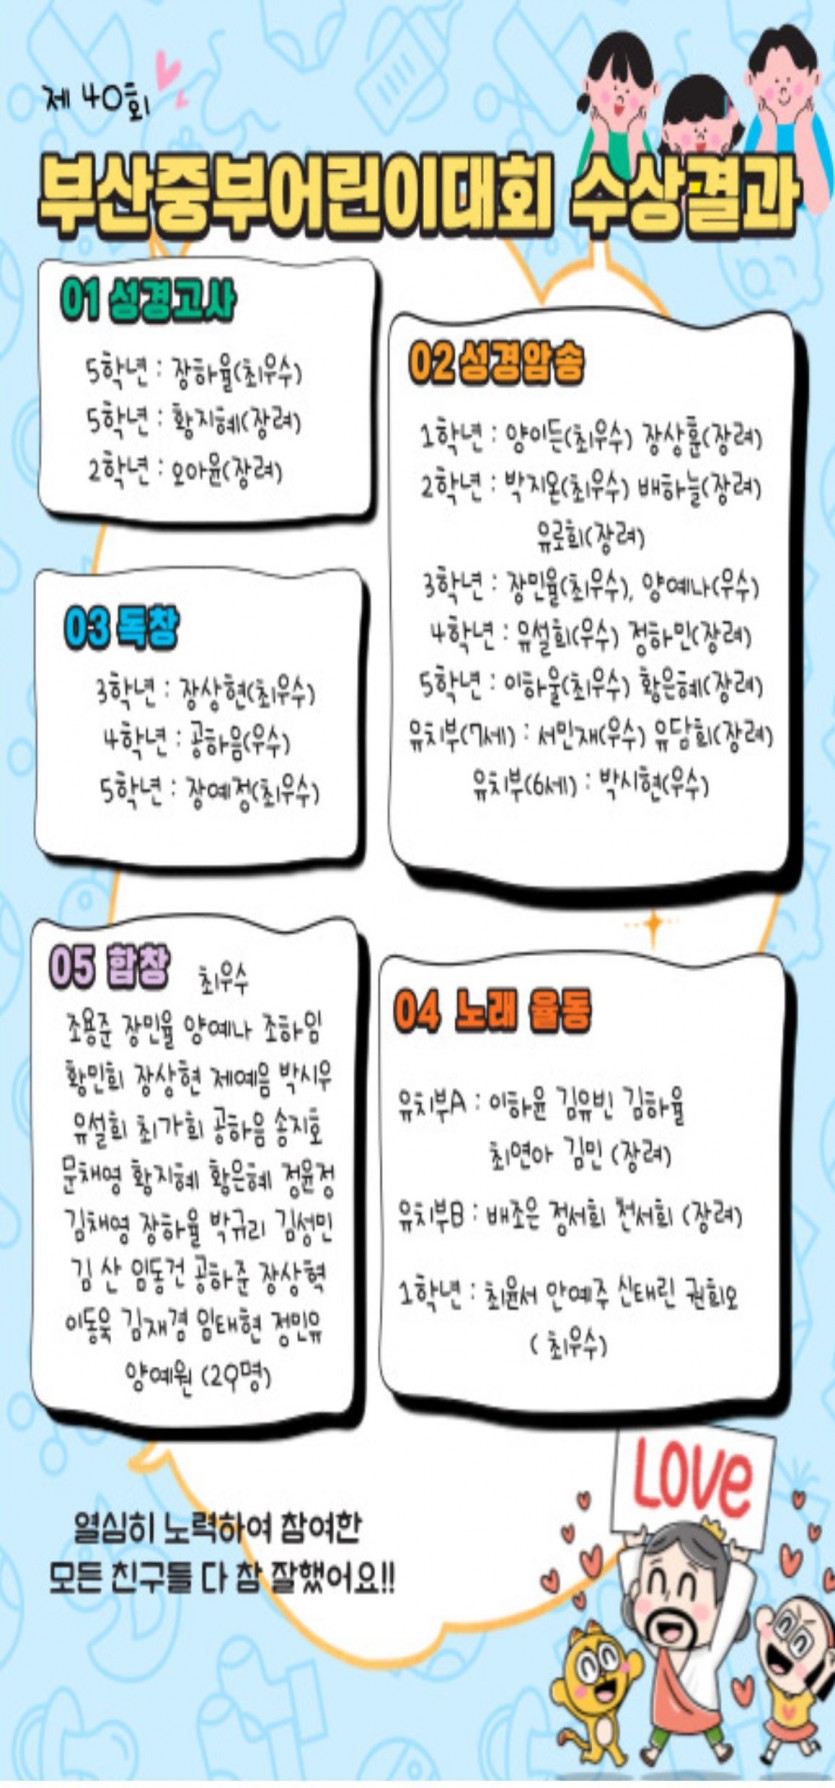 제 40회
부산중부어린이대회 수상결과
01 성경고사
5학년 : 장하율(최우수)
5학년 : 황지혜(장려)
2학년 : 오아윤(장려)
02 성경암송
1학년 : 양이든(최우수) 장상훈(장려)
2학년 : 박지온(최우수) 배하늘(장려)
유로희(장려)
3학년 : 장민율(최우수), 양예나(우수)
4학년 : 유설희(우수) 정하민(장려)
5학년 : 이하울(최우수) 황은혜(장려)
유치부(7세) : 서민재(우수) 유담희(장려)
유치부(6세) : 박시현(우수)
03 독창
3학년 : 장상현(최우수)
4학년 : 공하음(우수)
5학년 : 장예정(최우수)
05 합창 최우수
조용준 장민율 양예나 조하임
황민희 장상현 제예음 박시우
유설희 최가희 공하음 송지호
문채영 황지혜 황은혜 정윤정
김채영 장하율 박규리 김성민
김 산 임동건 공하준 장상혁
이동욱 김재겸 임태현 정민유
양예원 (29명)
04 노래 율동
유치부A : 이하윤 김유빈 김하율
최연아 김민 (장려)
유치부B : 배조은 정서희 천서희 (장려)
1학년 : 최윤서 안예주 신태린 권희오
( 최우수)
LOVE
열심히 노력하여 참여한
모든 친구들 다 참 잘했어요!!